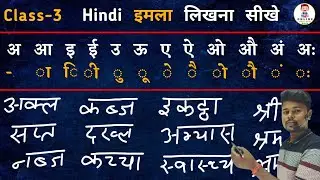 Class-3 Hindi इमला लिखना सीखे
अ आ इ ई उ ऊ ए ऐ ओ औ अं अः
- ा ि ी ु ू े ै ो ौ ं ः
अक्ल कब्ज इकट्ठा श्री
सप्त दख्ल अभ्यास श्रम
नब्ज कच्चा स्वास्थ्य